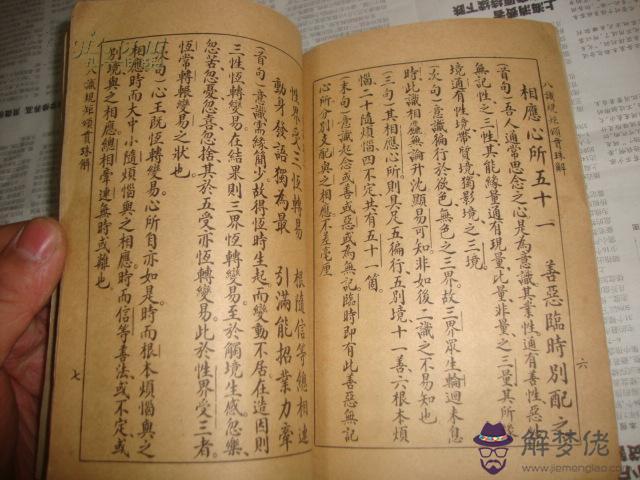 八識規矩頌貫珠解
相應心所五十一　善惡臨時別配之
(首句)吾人通常思念之心是為意識其業性通有善性惡性
無記性之三性其能緣量通有現量比量非量之三量其所緣
境通有性境帶質境獨影境之三境
(次句)意識徧行於欲色無色之三界故三界眾生輪迴未息
時此識相應無論升沈顯易可知非如後二識之不易知也
(三句)其相應心所則具足五徧行五別境十一善六根本煩
惱二十隨煩惱四不定共有五十一箇
(末句)意識起念或善或惡或為無記臨時即有此善惡無記
心所分別支配與之相應不差毫厘
六
性界受三恆轉易　根隨信等總相連
動身發語獨為最　引滿能招業力牽
(首句)意識需緣簡少故得恆時生起而變動不居在造因則
三性恆轉變易在結果則三界恆轉變易至於觸境生感忽樂
忽苦忽憂忽喜忽捨其於五受亦恆轉變易此於性界受三者
恆常轉展變易之狀也
句)心王既恆轉變易心所自亦如是時而根本煩惱與之
相應時而大中小隨煩惱與之相應時而信等善法或不定或
別境與之相應總相牽連無時或離也
八識規矩頌貫珠解
七
解梦佬
www.jiemenglao.com